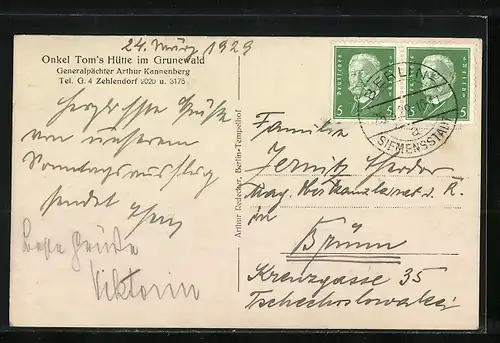 24. März 1929
Onkel Tom's Hütte im Grunewald
Generalpächter Arthur Kannenberg
Tel. G. 4 Zehlendorf 2020 u. 3175
Herzlichste Grüße
von unserem
Sonntagsausflug
sendet
Beste Grüße
Viktorin
Arthur Redecker, Berlin-Tempelhof
Deutsches Reich
5 5
Deutsches Reich
5 5
BERLIN
SIEMENSSTADT
Familie
in
Brünn
Krenzgasse 35
Tschechoslowakei